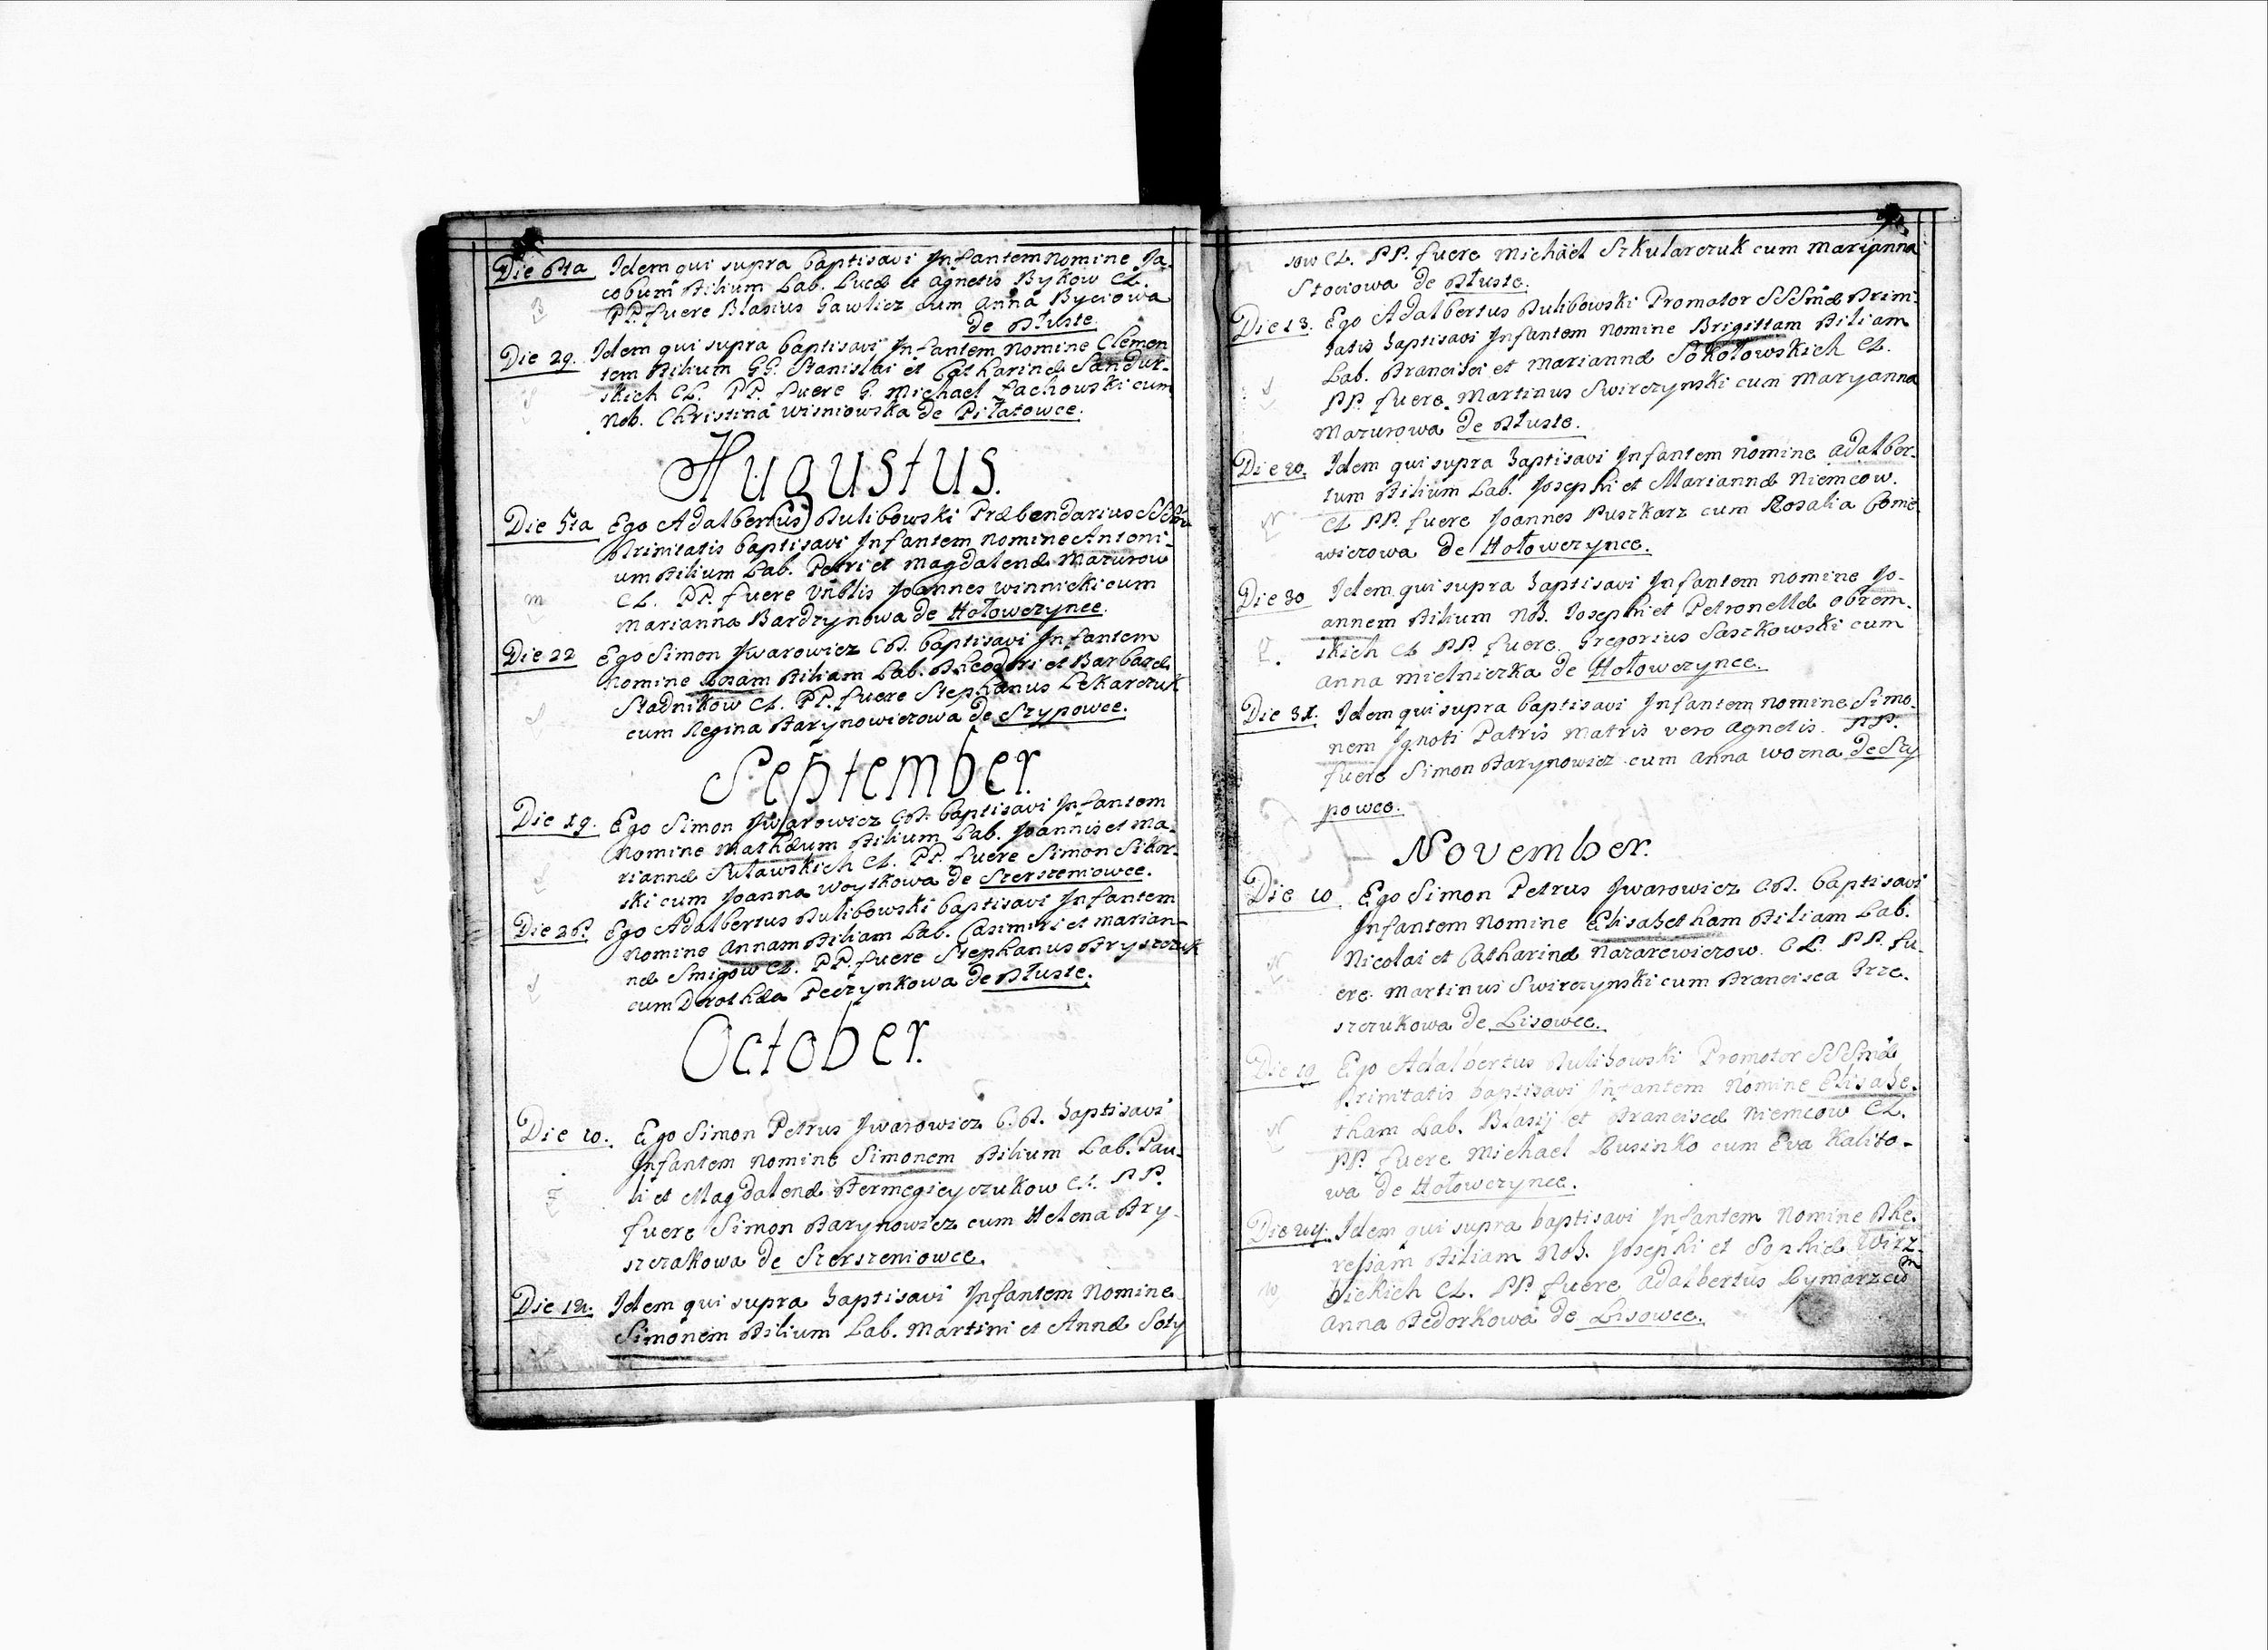 Die 6ta Idem qui supra baptisavi Infantem nomine Ja-
cobum Filium Lab. Lucæ et Agnetis Bykow CL.
B PP. fuere Blasius Gawlicz cum Anna Byciowa
de Tłuste.
Die 29. Idem qui supra baptisavi Infantem nomine Clemen
tem Filium GG. Stanislai et Catharinæ Sandur-
S skich CL. PP. fuere G. Michael Łachowski cum
Nob. Christina Wisniowska de Piłatowce.
Augustus.
Die 5ta Ego Adalber(us) Tulibowski Præbendarius SSSmæ
Trinitatis baptisavi Infantem nomine Antoni-
um Filium Lab. Petri et Magdalenæ Mazurow
m CL. PP. fuere Vnblis Joannes Winnicki cum
Marianna Bardzynowa de Hołowczynce.
Die 22 Ego Simon Jwarowicz CT. baptisavi Infantem
nomine Rosam Filiam Lab. Theodori et Barbaræ
S Stadnikow CL. PP. fuere Stephanus Lekarczuk
cum Regina Tarynowiczowa de Szypowce.
September.
Die 19. Ego Simon Jwarowicz CT. baptisavi Infantem
nomine Mathæum Filium Lab. Joannis et Ma-
S riannæ Suławskich CL. PP. fuere Simon Sikor-
ski cum Joanna Woytkowa de Szerszeniowce.
Die 26. Ego Adalbertus Tulibowski baptisavi Infantem
nomine Annam Filiam Lab. Casimiri et Marian-
S næ Smigow CL. PP. fuere Stephanus Tryszczuk
cum Dorothæa Peczynkowa de Tłuste.
October.
Die 10. Ego Simon Petrus Jwarowicz C.T. baptisavi
Infantem nomine Simonem Filium Lab. Pau-
F li et Magdalenæ Fermegieyczukow CL. PP.
fuere Simon Tarynowicz cum Helena Try-
szczakowa de Szerszeniowce.
Die 12. Idem qui supra baptisavi Infantem Nomine
Simonem Filium Lab. Martini et Annæ Soty
sow CL. PP. fuere Michael Szkularczuk cum Marianna
Stociowa de Tłuste.
Die 13. Ego Adalbertus Tulibowski Promotor SSSmæ Trini-
tatis baptisavi Infantem nomine Brigittam Filiam
S Lab. Francisci et Mariannæ Sokołowskich CL.
PP. fuere Martinus Swirczynski cum Maryanna
Mazurowa de Tłuste.
Die 20. Idem qui supra baptisavi Infantem nomine Adalber-
tum Filium Lab. Josephi et Mariannæ Niemcow.
N CL PP. fuere Joannes Puszkarz cum Rosalia Pome
wiczowa de Hołowczynce.
Die 30 Idem qui supra baptisavi Infantem nomine Jo-
annem Filium Nob. Josephi et Petronellæ Obrem-
skich CL PP. fuere Gregorius Saszkowski cum
Anna Mielniczka de Hołowczynce.
Die 31. Idem qui supra baptisavi Infantem nomine Simo-
nem Ignoti Patris Matris vero Agnetis. PP.
fuere Simon Tarynowicz cum Anna Wozna de Szy
powce.
November.
Die 10 Ego Simon Petrus Jwarowicz CT. baptisavi
Infantem nomine Elisabetham Filiam Lab.
N Nicolai et Catharinæ Nazarewiczow. CL. PP. fu-
ere Martinus Swirczynski cum Francisca Trze-
szczukowa de Lisowce.
Die 19 Ego Adalbertus Tulibowski Promotor SSSmæ
Trinitatis baptisavi Infantem Nomine Elisabe-
N tham Lab. Blasij et Franciscæ Niemcow CL.
PP. fuere Michael Rusinko cum Eva Kalito-
wa de Hołowczynce.
Die 24. Idem qui supra baptisavi Infantem Nomine The-
resiam Filiam Nob. Josephi et Sophiæ Wirz-
W bickich CL. PP. fuere Adalbertus Rymarz cum
Anna Fedorkowa de Lisowce.